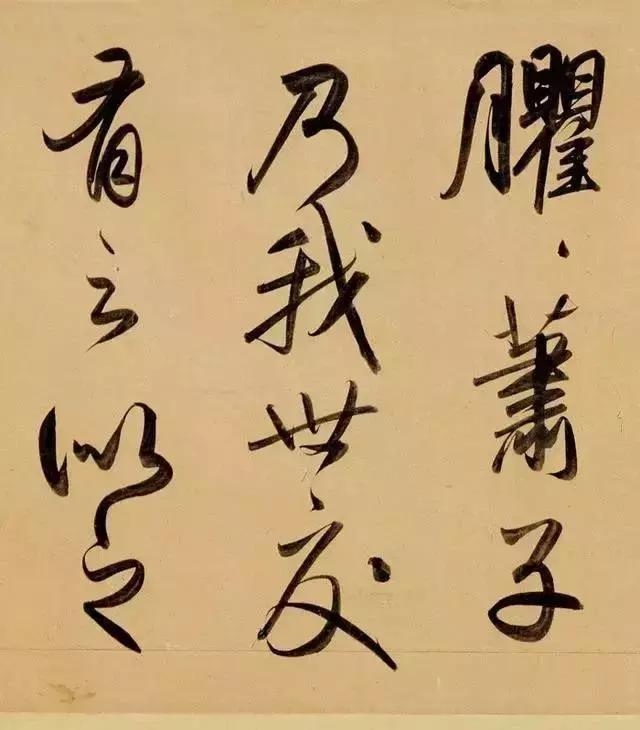 臞、蕭子
乃我世友
有之似之